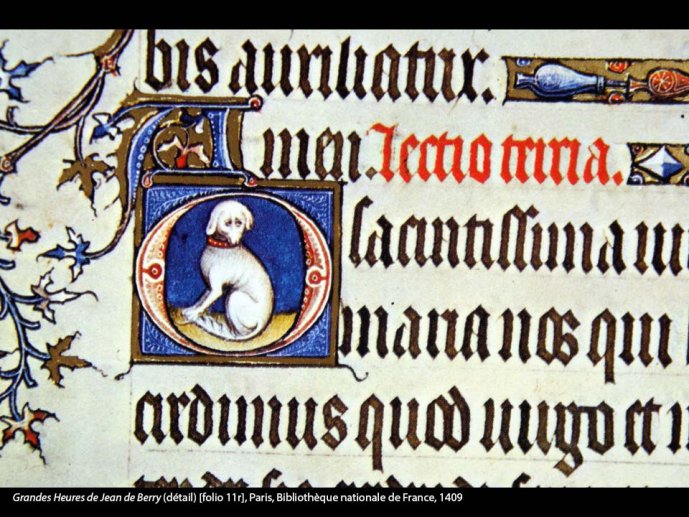 bis auxiliatrix.
Amen. Lectio tercia.
O sacratissima
maria nos qui
credimus quod uirgo et
Grandes Heures de Jean de Berry (détail) [folio 11r], Paris, Bibliothèque nationale de France, 1409